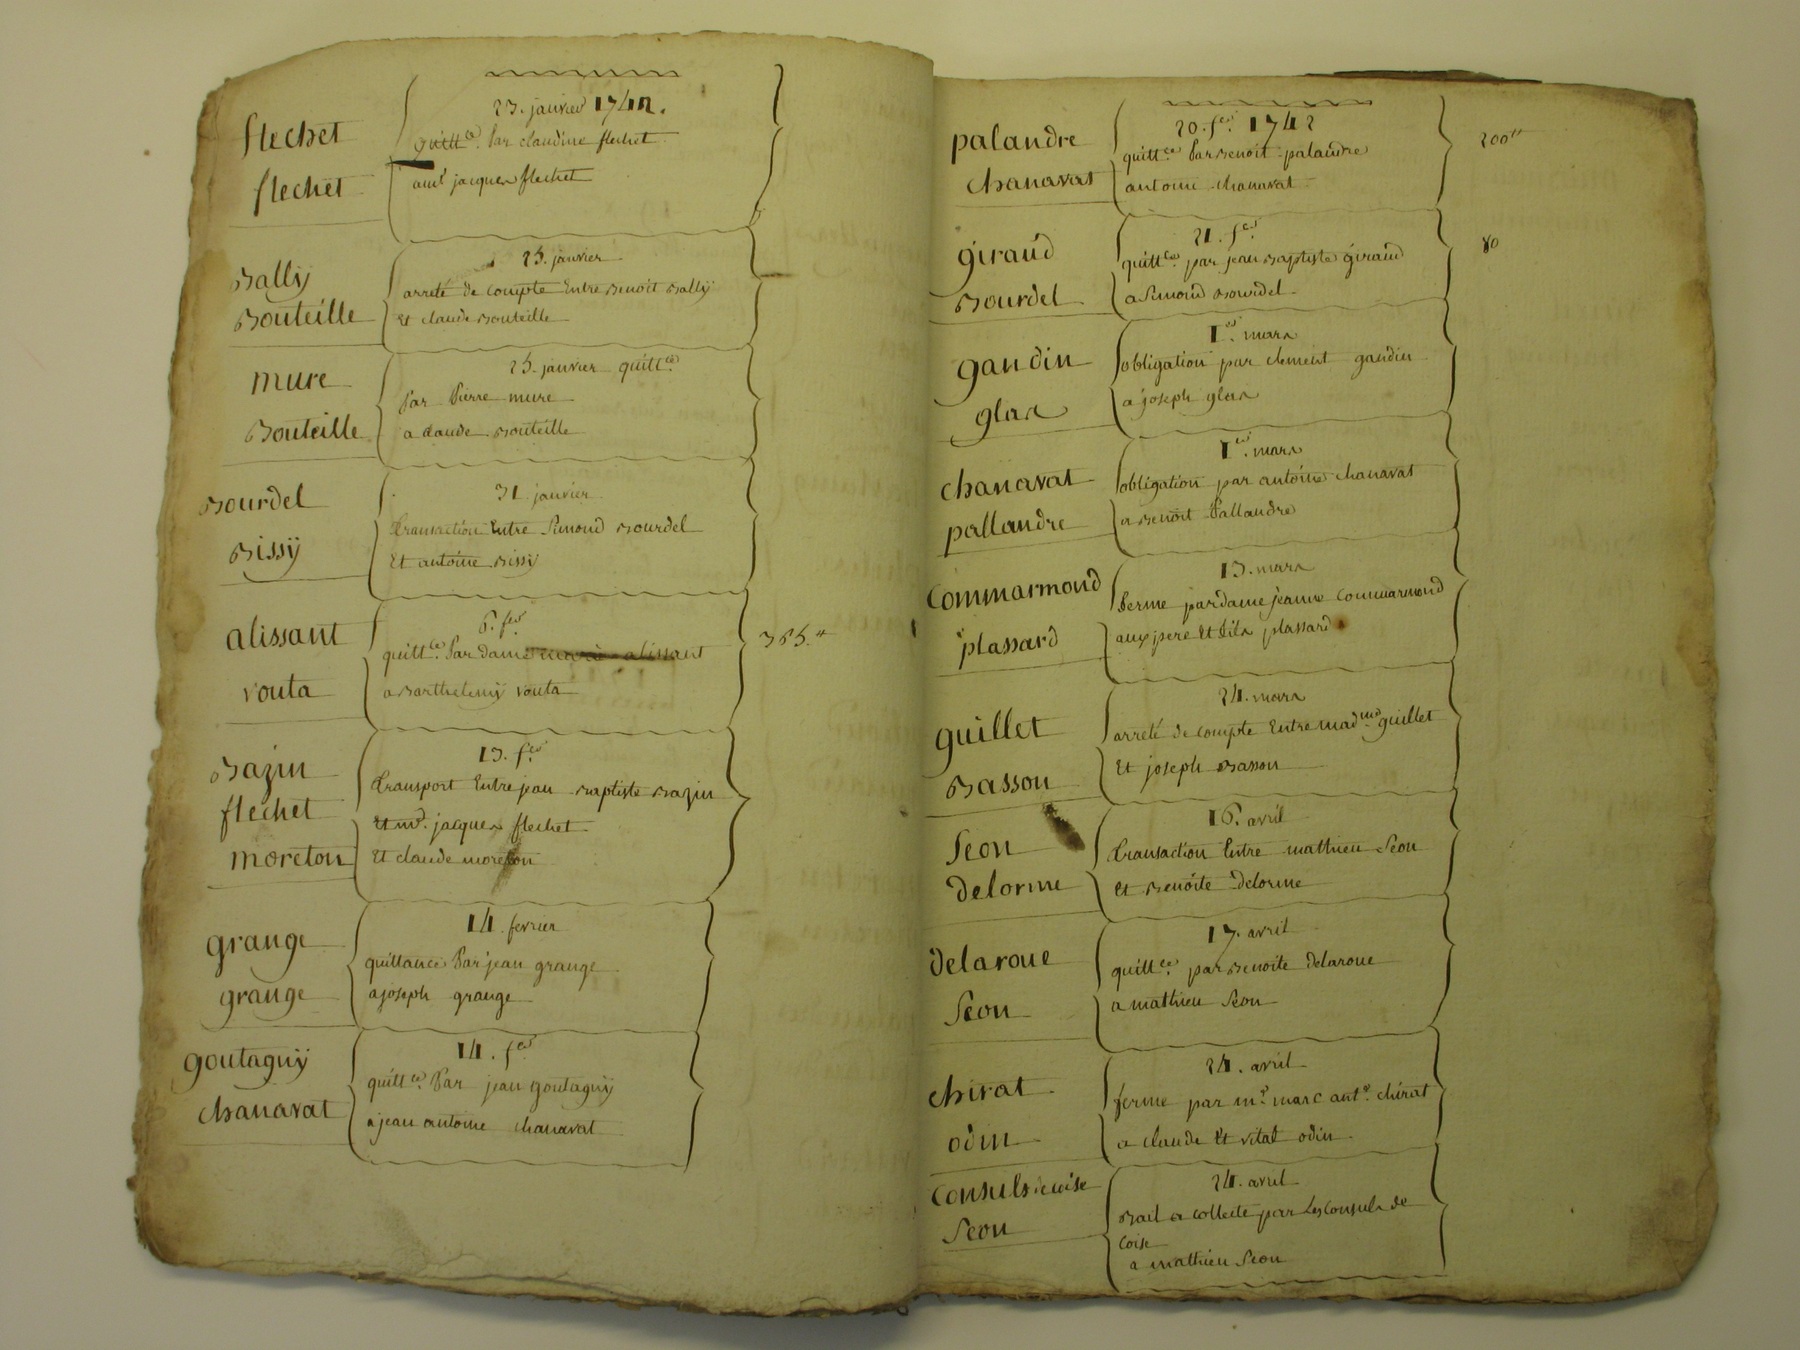 flechet
flechet
23. janvier 1742.
quitt.ce par claudine flechet
jacques flechet
Bally
Bouteille
25. janvier
arreté de compte Entre Benoit Bally
Et claude Bouteille
mure
Bouteille
25. janvier quitt.ce
par pierre mure
a claude Bouteille
Bourdel
Bissÿ
31. janvier
transaction Entre Simond Bourdel
Et antoine Bissÿ
alissant
vouta
6. fer
quitt.ce par dame marie alissant
a Barthelemÿ vouta
365.#
Bazin
flechet
moreton
13. fer
transport Entre jean Baptiste Bazin
Et mr. jacques flechet
Et claude moreton
grange
grange
14. fevrier
quittance par jean grange
a joseph grange
goutagnÿ
chanavat
14. fer
quitt.ce par jean goutagnÿ
a jean antoine chanavat
palandre
chanavat
20. fer 1742
quitt.ce par Benoit palandre
antoine chanavat
200#
giraud
Bourdel
21. fer
quitt.ce par jean Baptiste giraud
a Simond Bourdel
80
gaudin
glas
1er. mars
obligation par clement gaudin
a joseph glas
chanavat
pallandre
1er. mars
obligation par antoine chanavat
a Benoit pallandre
Commarmond
plassard
13. mars
ferme par dame jeanne Commarmond
aux pere Et fils plassard
guillet
Basson
24. mars
arreté de compte Entre madme guillet
Et joseph Basson
Seon
delorme
16. avril
transaction Entre mathieu Seon
Et Benoite delorme
delaroue
Seon
17. avril
quitt.ce par Benoite delaroue
a mathieu Seon
chirat
odin
24. avril
ferme par mr. marc ant.e chirat
a claude Et vital odin
Consuls de coise
Seon
24. avril
Bail a collecte par Les Consuls de
Coise
a mathieu Seon